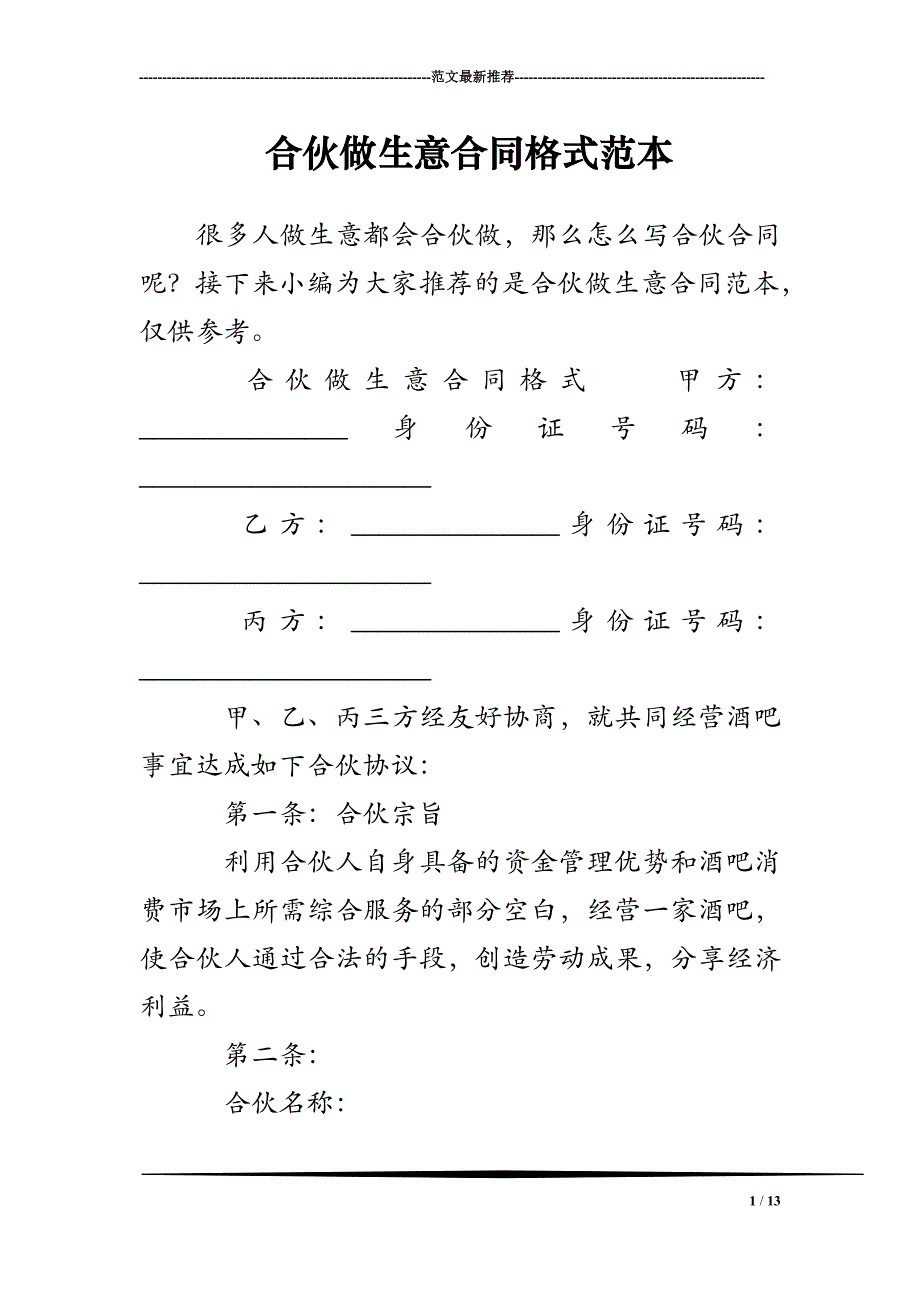 ---------------------------------------------------------------范文最新推荐------------------------------------------------------
合伙做生意合同格式范本
很多人做生意都会合伙做，那么怎么写合伙合同
呢？接下来小编为大家推荐的是合伙做生意合同范本，
仅供参考。
合伙做生意合同格式 甲方：
_______________ 身份证号码：
_____________________
乙方：_______________身份证号码：
_____________________
丙方：_______________身份证号码：
_____________________
甲、乙、丙三方经友好协商，就共同经营酒吧
事宜达成如下合伙协议：
第一条：合伙宗旨
利用合伙人自身具备的资金管理优势和酒吧消
费市场上所需综合服务的部分空白，经营一家酒吧，
使合伙人通过合法的手段，创造劳动成果，分享经济
利益。
第二条：
合伙名称：
1 / 13